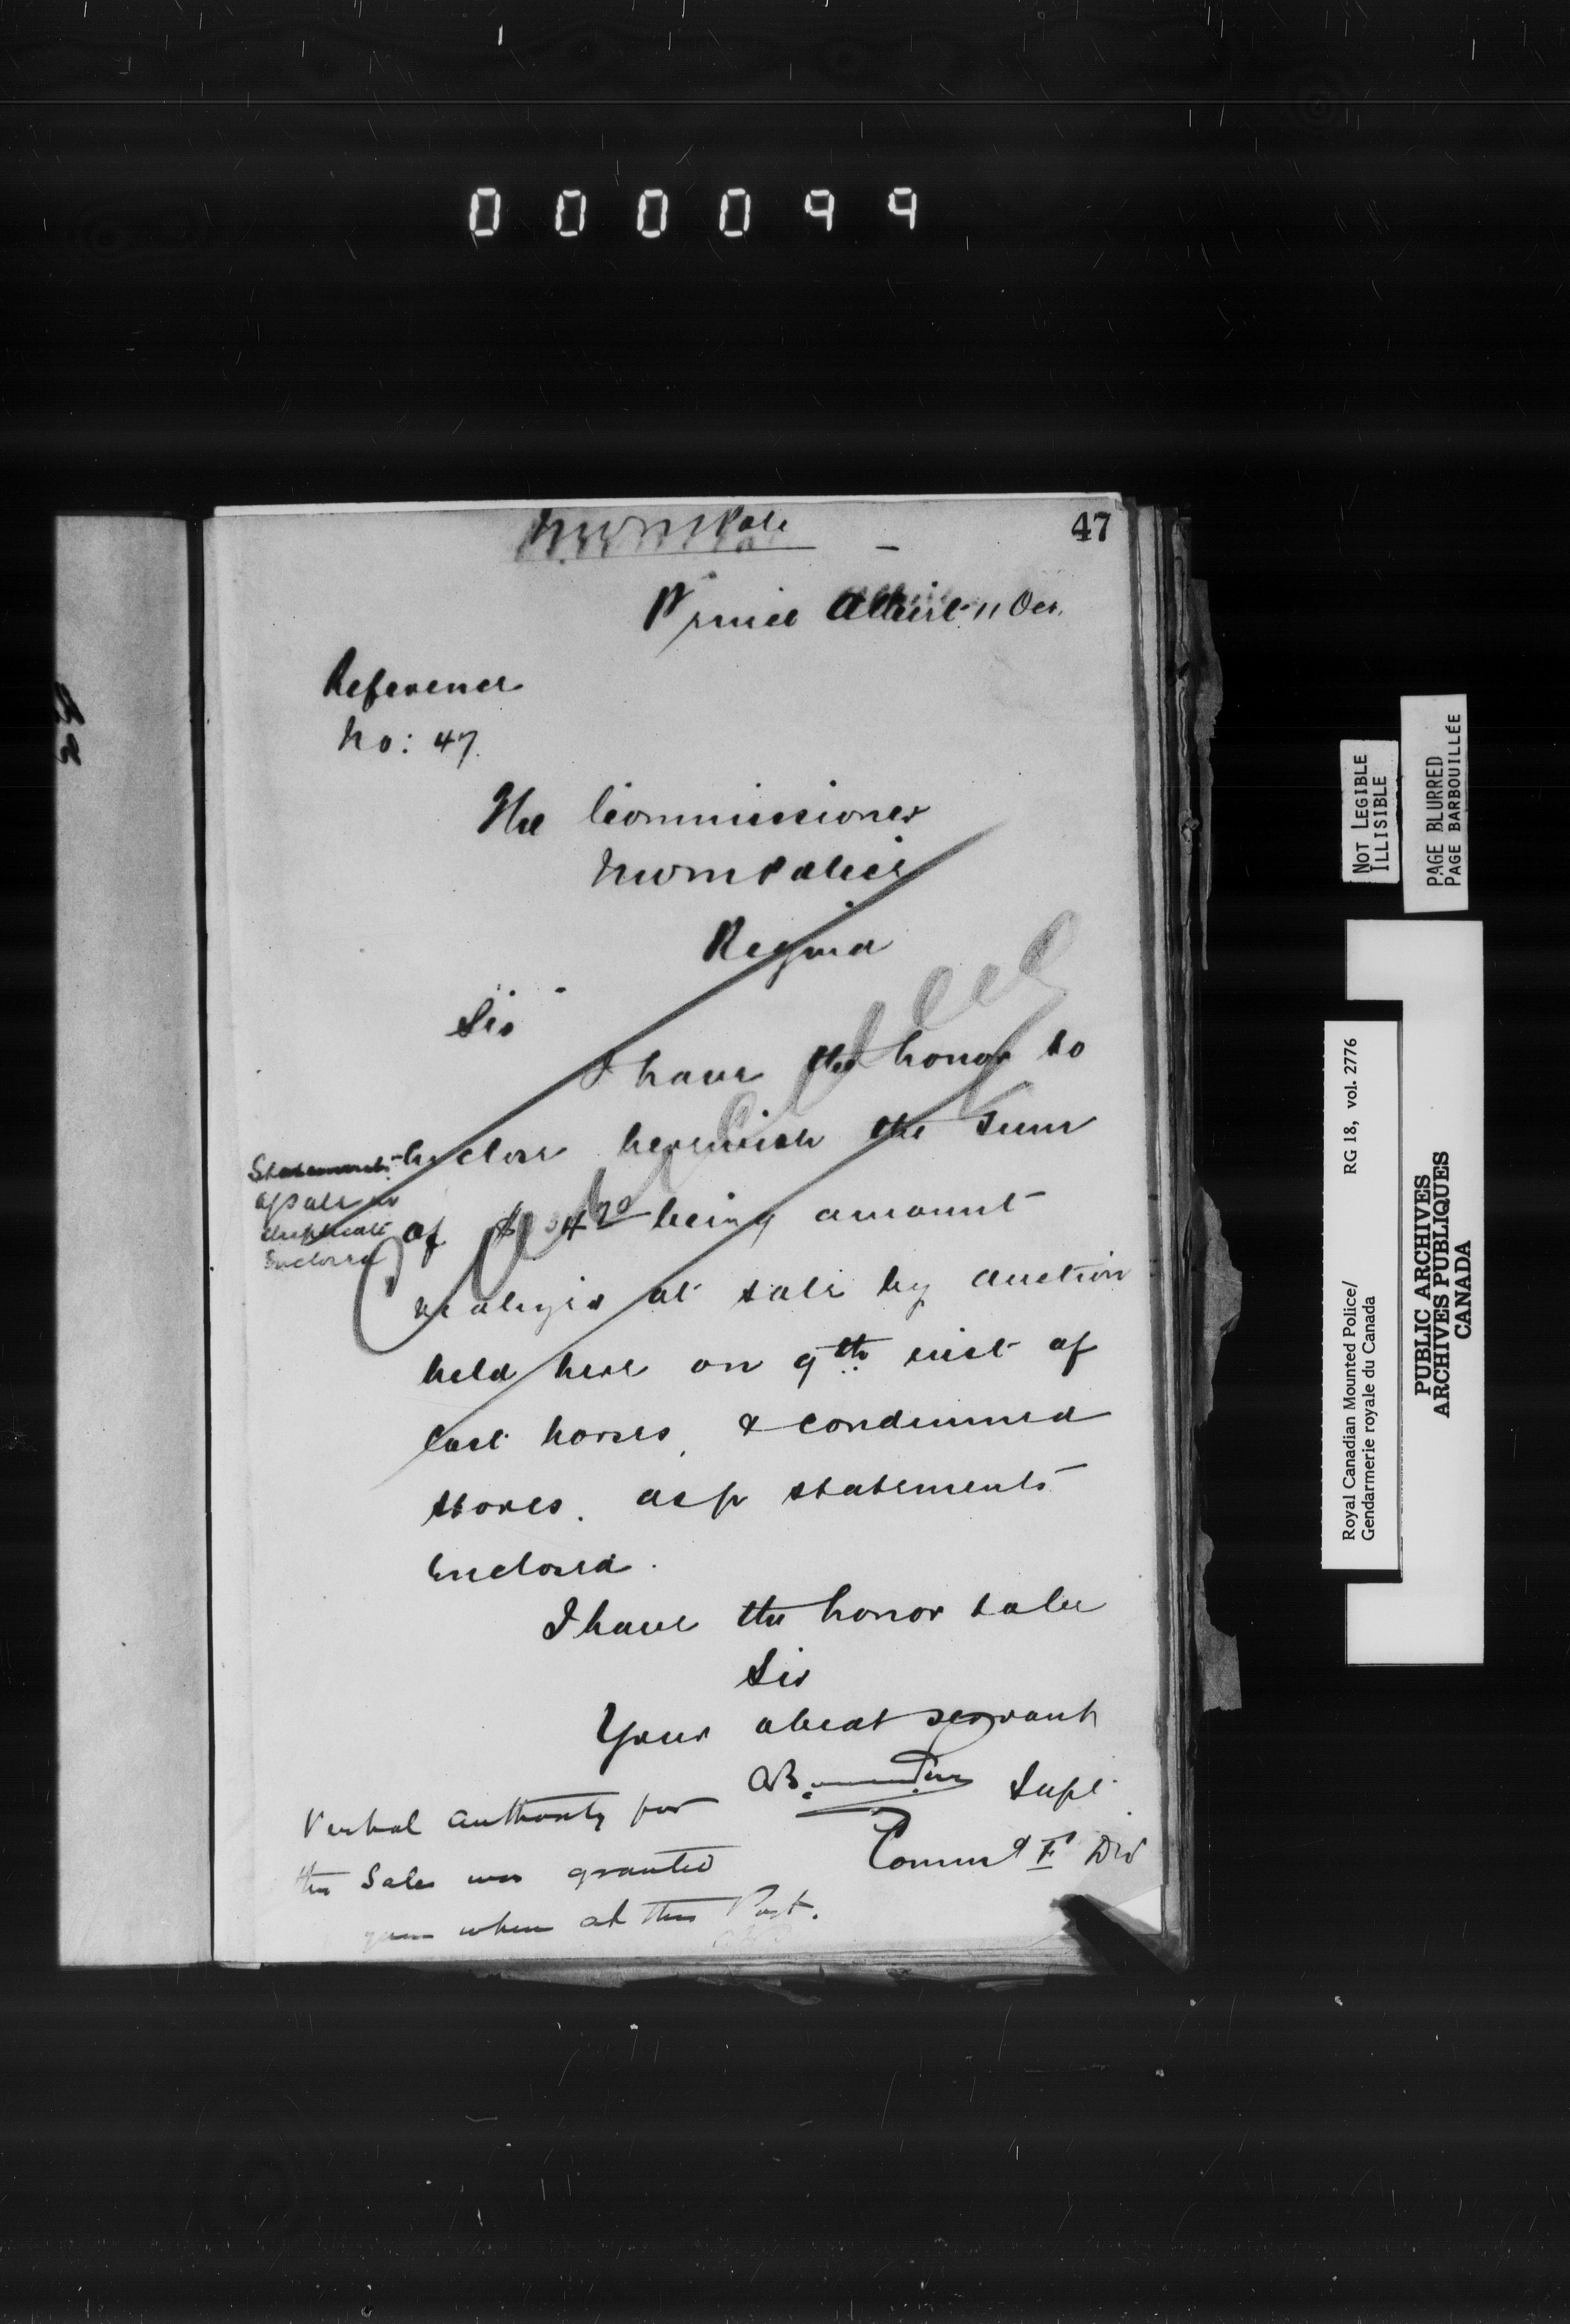 000099
47
NWM Police
Prince Albert 11 Oct.
Reference
No: 47.
The Commissioner
NWM Police
Regina
Sir
I have the honor to
Enclose herewith the sum
of $ being amount
realized at sale by auction
held here on 9th inst of
Cast horses, & condemned
stores. as pr statements
Enclosed.
Statements
of sale in
duplicate
Enclosed
Cancelled
I have the honor to be
Sir
Your obedt servant
Supt.
Commd F Div
Verbal authority for
this Sale was granted
when at this Post.
NOT LEGIBLE
ILLISIBLE
PAGE BLURRED
PAGE BARBOUILLÉE
Royal Canadian Mounted Police/
Gendarmerie royale du Canada
RG 18, vol. 2776
PUBLIC ARCHIVES
ARCHIVES PUBLIQUES
CANADA